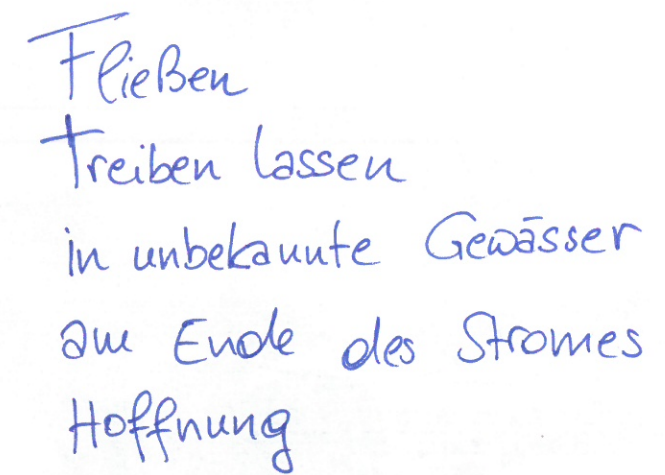 Fließen
Treiben lassen
in unbekannte Gewässer
am Ende des Stromes
Hoffnung